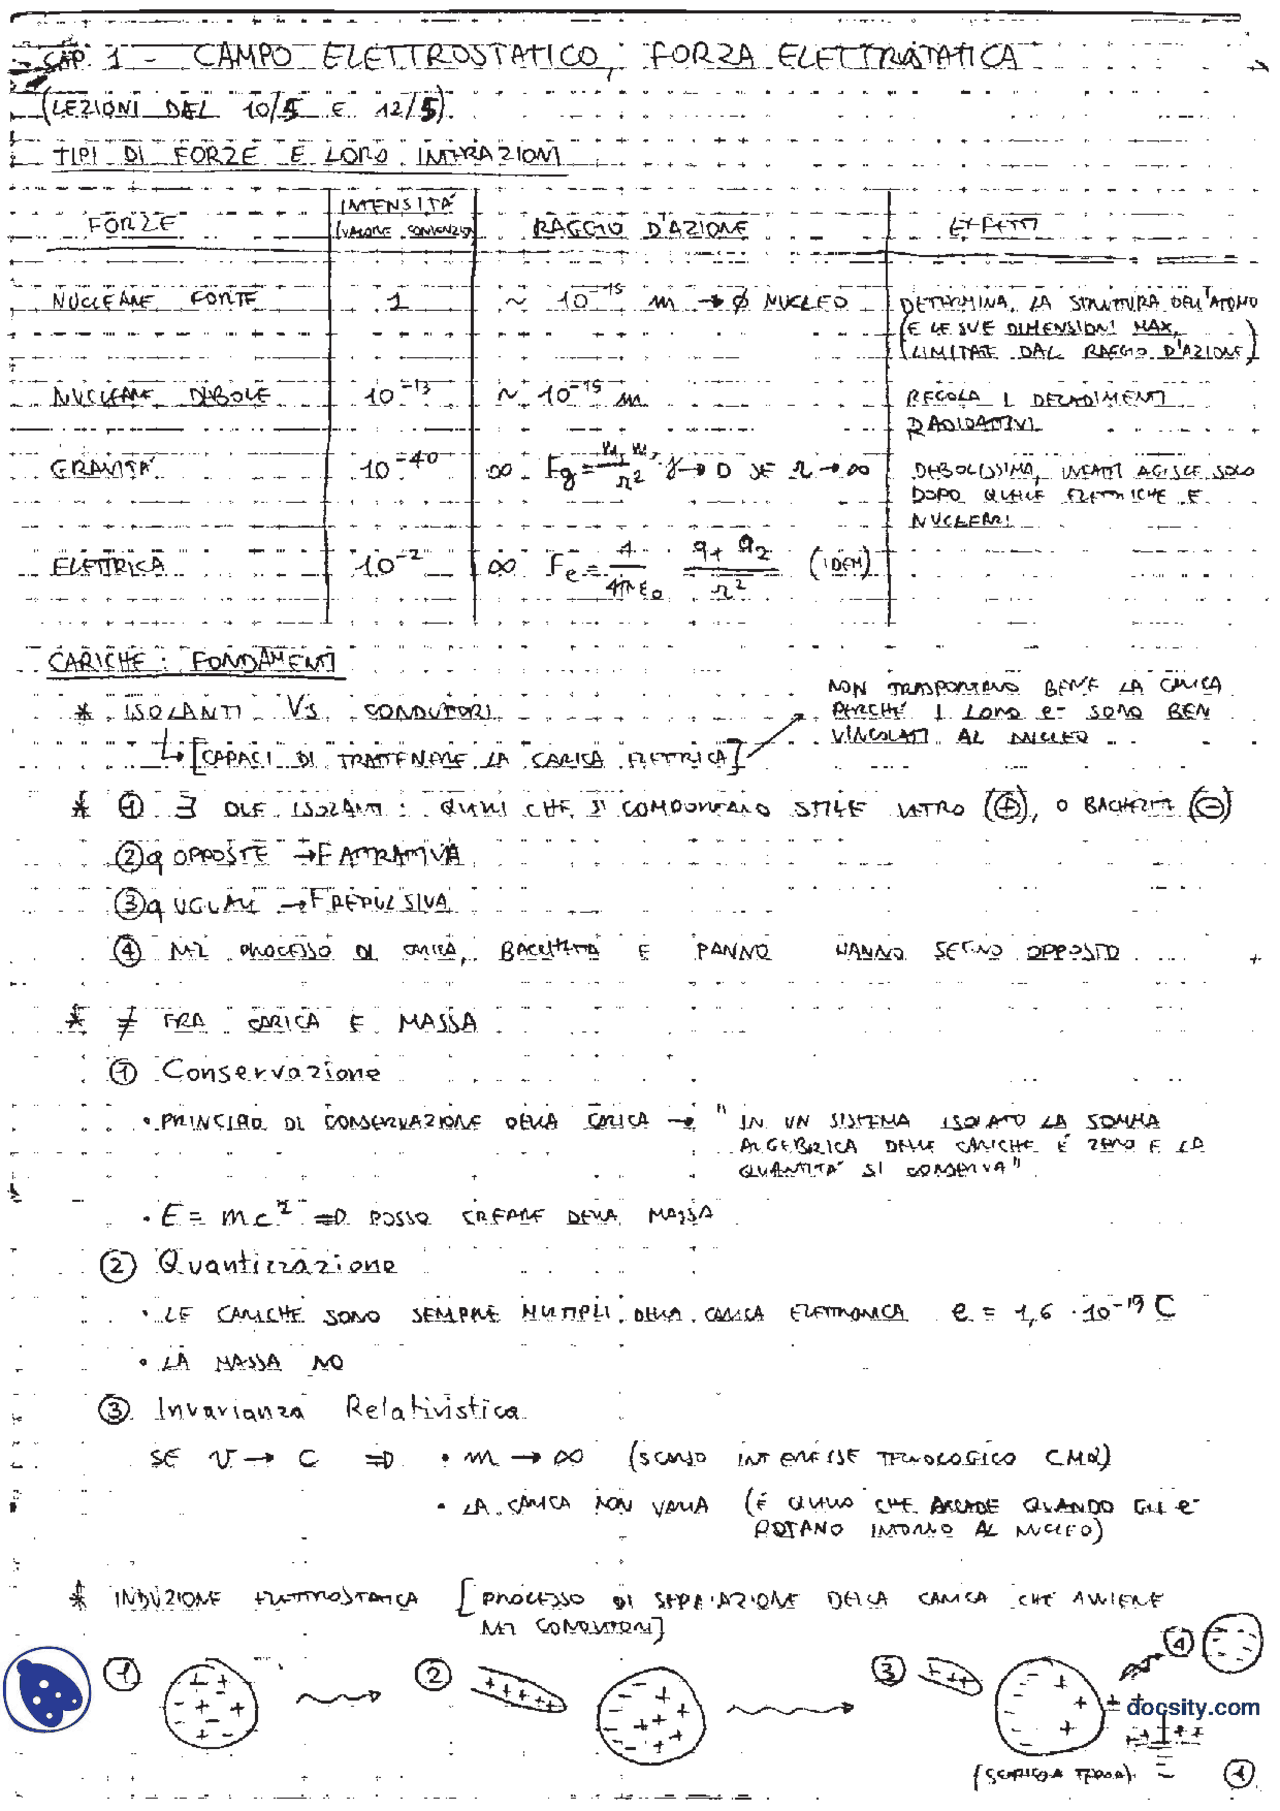 CAP. 1 - CAMPO ELETTROSTATICO, FORZA ELETTROSTATICA
(LEZIONI DEL 10/5 E 12/5)
TIPI DI FORZE E LORO INTERAZIONI
FORZE INTENSITÀ (VALORE CONVENZIO) RAGGIO D'AZIONE EFFETTI
NUCLEARE FORTE 1 ~ 10^-15 m → φ NUCLEO DETERMINA LA STRUTTURA DELL'ATOMO
(E LE SUE DIMENSIONI MAX,
LIMITATE DAL RAGGIO D'AZIONE)
NUCLEARE DEBOLE 10^-13 ~ 10^-15 m REGOLA I DECADIMENTI
RADIOATTIVI
GRAVITÀ 10^-40 ∞ Fg = m₁ m₂ / r² γ → 0 SE r → ∞ DEBOLISSIMA, INFATTI AGISCE SOLO
DOPO QUELLE ELETTRICHE E
NUCLEARI
ELETTRICA 10^-2 ∞ Fe = 1/4πε₀ q₁ q₂ / r² (IDEM)
CARICHE: FONDAMENTI
* ISOLANTI VS CONDUTTORI
NON TRASPORTANO BENE LA CARICA
PERCHÉ I LORO e- SONO BEN
VINCOLATI AL NUCLEO
↳ [CAPACI DI TRATTENERE LA CARICA ELETTRICA]
* ① ∃ DUE ISOLANTI: QUELLI CHE SI COMPORTANO STILE VETRO (⊕), O BACHELITE (⊖)
② q OPPOSTE → F ATTRATTIVA
③ q UGUALI → F REPULSIVA
④ NEL PROCESSO DI CARICA, BACCHETTA E PANNO HANNO SEGNO OPPOSTO
* ≠ FRA CARICA E MASSA
① Conservazione
• PRINCIPIO DI CONSERVAZIONE DELLA CARICA → "IN UN SISTEMA ISOLATO LA SOMMA
ALGEBRICA DELLE CARICHE È ZERO E LA
QUANTITÀ SI CONSERVA"
• E = mc² ⇒ POSSO CREARE DELLA MASSA
② Quantizzazione
• LE CARICHE SONO SEMPRE MULTIPLI DELLA CARICA ELETTRONICA e = 1,6 · 10^-19 C
• LA MASSA NO
③ Invarianza Relativistica
SE v → C ⇒ • m → ∞ (SCARSO INTERESSE TECNOLOGICO)
• LA CARICA NON VARIA (È QUELLO CHE ACCADE QUANDO GLI e-
ROTANO INTORNO AL NUCLEO)
* INDUZIONE ELETTROSTATICA [PROCESSO DI SEPARAZIONE DELLA CARICA CHE AVVIENE
NEI CONDUTTORI]
① ② ③ ④
docsity.com
(SCARICO A TERRA)
①